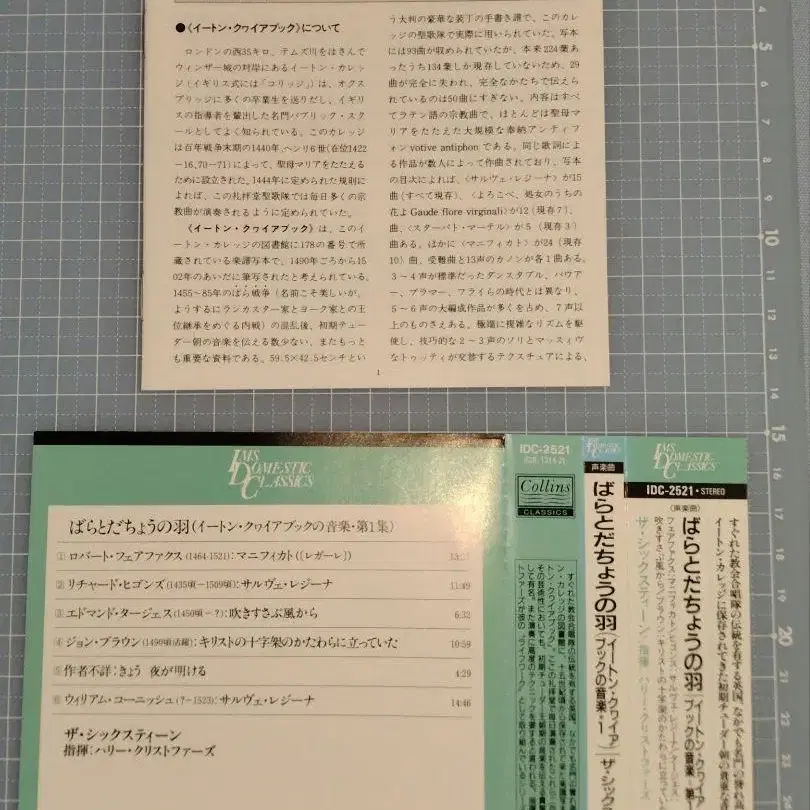 ●《イートン・クヮイアブック》について
ロンドンの西35キロ、テムズ川をはさんで
ウィンザー城の対岸にあるイートン・カレッ
ジ(イギリス式には「コリッジ」)は、オクス
ブリッジに多くの卒業生を送りだし、イギリ
スの指導者を輩出した名門パブリック・スク
ールとしてよく知られている。このカレッジ
は百年戦争末期の1440年、ヘンリ6世(在位1422
-16、70-71)によって、聖母マリアをたたえる
ために設立された。1444年に定められた規則に
よれば、この礼拝堂聖歌隊では毎日多くの宗
教曲が演奏されるように定められていた。
《イートン・クヮイアブック》は、このイ
ートン・カレッジの図書館に178の番号で所
蔵されている楽譜写本で、1490年ごろから15
02年のあいだに筆写されたと考えられている。
1455~85年のばら戦争(名前こそ美しいが、
ようするにランカスター家とヨーク家との王
位継承をめぐる内戦)の混乱後、初期テュー
ダー朝の音楽を伝える数少ない、またもっと
も重要な資料である。59.5×42.5センチとい
う大判の豪華な装丁の手書き譜で、このカレ
ッジの聖歌隊で実際に用いられていた。写本
には93曲が収められていたが、本来224葉あ
ったうち134葉しか現存していないため、29
曲が完全に失われ、完全なかたちで伝えら
れているのは50曲にすぎない。内容はすべ
てラテン語の宗教曲で、ほとんどは聖母マ
リアをたたえた大規模な奉納アンティフ
ォン votive antiphon である。同じ歌詞によ
る作品が数人によって作曲されており、写本
の目次によれば、〈サルヴェ・レジーナ〉が15
曲(すべて現存)、〈よろこべ、処女のうちの
花よ Gaude flore virginali〉が12(現存7)、
曲、〈スターバト・マーテル〉が5(現存3)
曲ある。ほかに〈マニフィカト〉が24(現存
10)曲、受難曲と13声のカノンが各1曲ある。
3~4声が標準だったダンスタブル、パウア
ー、プラマー、フライらの時代とは異なり、
5~6声の大編成作品が多くを占め、7声以
上のものさえある。極端に複雑なリズムを駆
使し、技巧的な2~3声のソリとマッスィヴ
なトゥッティが交替するテクスチュアによる、
1
IMS
DOMESTIC
CLASSICS
ばらとだちょうの羽(イートン・クヮイアブックの音楽・第1集)
1 ロバート・フェアファクス(1464-1521):マニフィカト(〈レガーレ〉)
2 リチャード・ヒゴンズ(1435頃-1509頃):サルヴェ・レジーナ 11:49
3 エドマンド・タージェス(1450頃-?):吹きすさぶ風から 6:32
4 ジョン・ブラウン(1490頃活躍):キリストの十字架のかたわらに立っていた 10:59
5 作者不詳:きょう 夜が明ける 4:29
6 ウィリアム・コーニッシュ(?-1523):サルヴェ・レジーナ 14:46
ザ・シックスティーン
指揮:ハリー・クリストファーズ
IDC-2521
Collins
CLASSICS
声楽曲
ばらとだちょうの羽(イートン・クヮイアブックの音楽・1)
ザ・シックス
IMS
DOMESTIC
CLASSICS
IDC-2521・STEREO
(声楽曲)
ばらとだちょうの羽(イートン・クヮイアブックの音楽・第1
ザ・シックスティーン 指揮:ハリー・クリストファーズ
すぐれた教会合唱隊の伝統を有する英国、なかでも名門の誉れ
イートン・カレッジに保存されてきた初期チューダー朝の貴重な